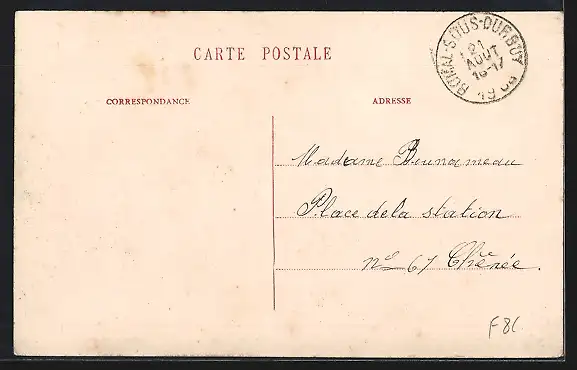 CARTE POSTALE
BOMAL-SOUS-DURBUY
21
AOUT
16-17
19 09
CORRESPONDANCE
ADRESSE
Madame
Place de la station
n° 67 Chênée.
F86